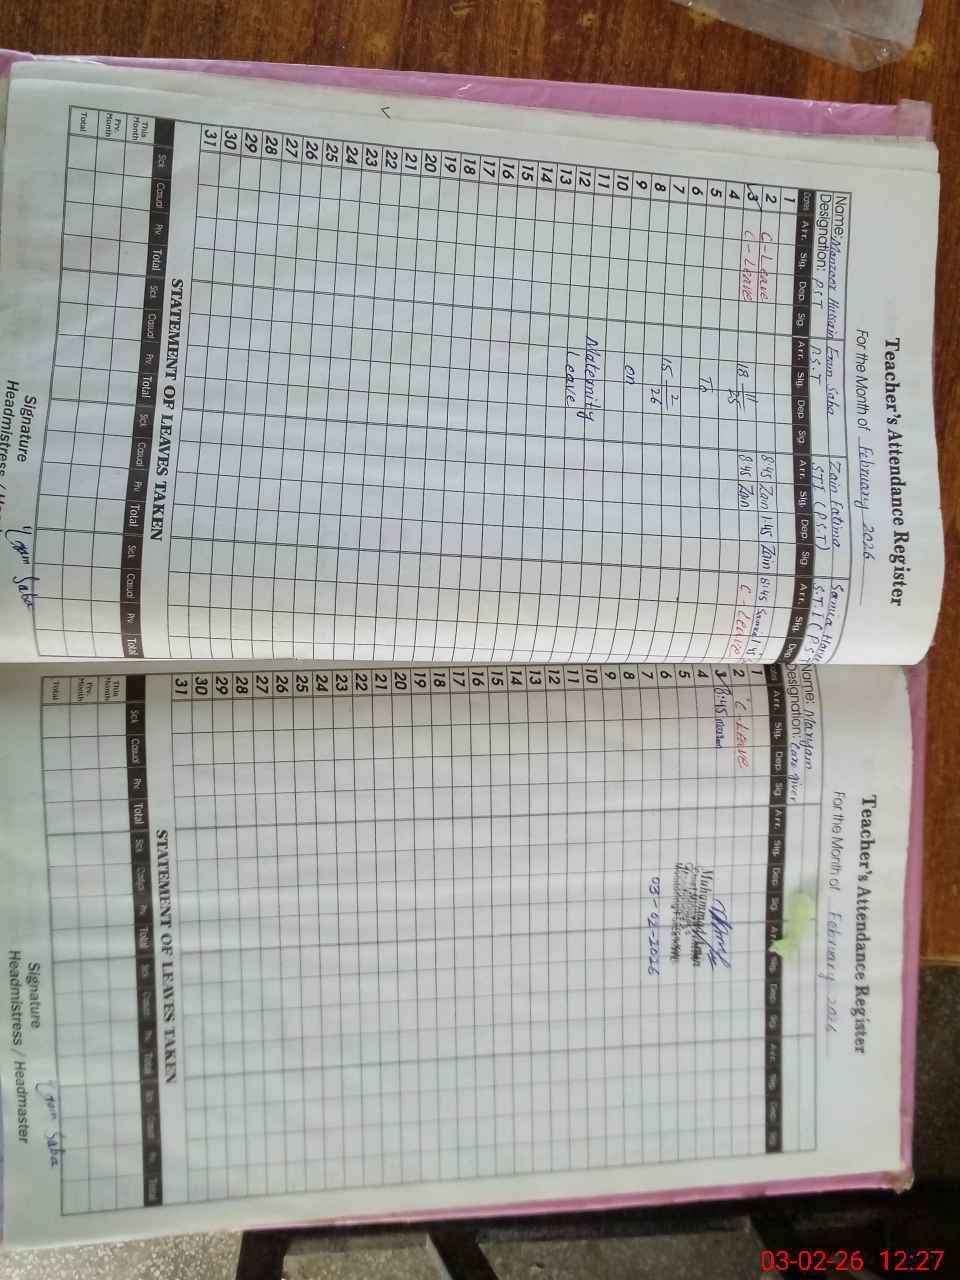 Teacher's Attendance Register
For the Month of February 2026
Name: Manzoor Hussain Erum Saba Zain Fatima Samia
Designation: P.S.T P.S.T STI (P.S.T) S.T.I (P.S.T)
Dates Arr. Sig. Dep. Sig. Arr. Sig. Dep. Sig. Arr. Sig. Dep. Sig. Arr. Sig. Dep.
1
2 C-Leave 8:45 Zain 1:45 Zain 8:45
3 C-Leave 8:45 Zain C-Leave
4 18/11/25
5
6 To
7
8 15/2/26
9
10 on
11
12 Maternity
13 Leave
14
15
16
17
18
19
20
21
22
23
24
25
26
27
28
29
30
31
STATEMENT OF LEAVES TAKEN
Sick Casual Prv. Total Sick Casual Prv. Total Sick Casual Prv. Total Sick Casual Prv. Total
This Month
Prv. Month
Total
Signature
Headmistress /
Erum Saba
Teacher's Attendance Register
For the Month of February 2026
Name: Maryam
Designation: Care giver
Dates Arr. Sig. Dep. Sig. Arr. Sig. Dep. Sig. Arr. Sig. Dep. Sig. Arr. Sig. Dep. Sig.
1
2 C-Leave
3 8:45
4
5
6
7
8
9
10
11
12
13
14
15
16
17
18
19
20
21
22
23
24
25
26
27
28
29
30
31
Muhammad
03-02-2026
STATEMENT OF LEAVES TAKEN
Sick Casual Prv. Total Sick Casual Prv. Total Sick Casual Prv. Total Sick Casual Prv. Total
This Month
Prv. Month
Total
Signature
Headmistress / Headmaster
Erum Saba
03-02-26 12:27